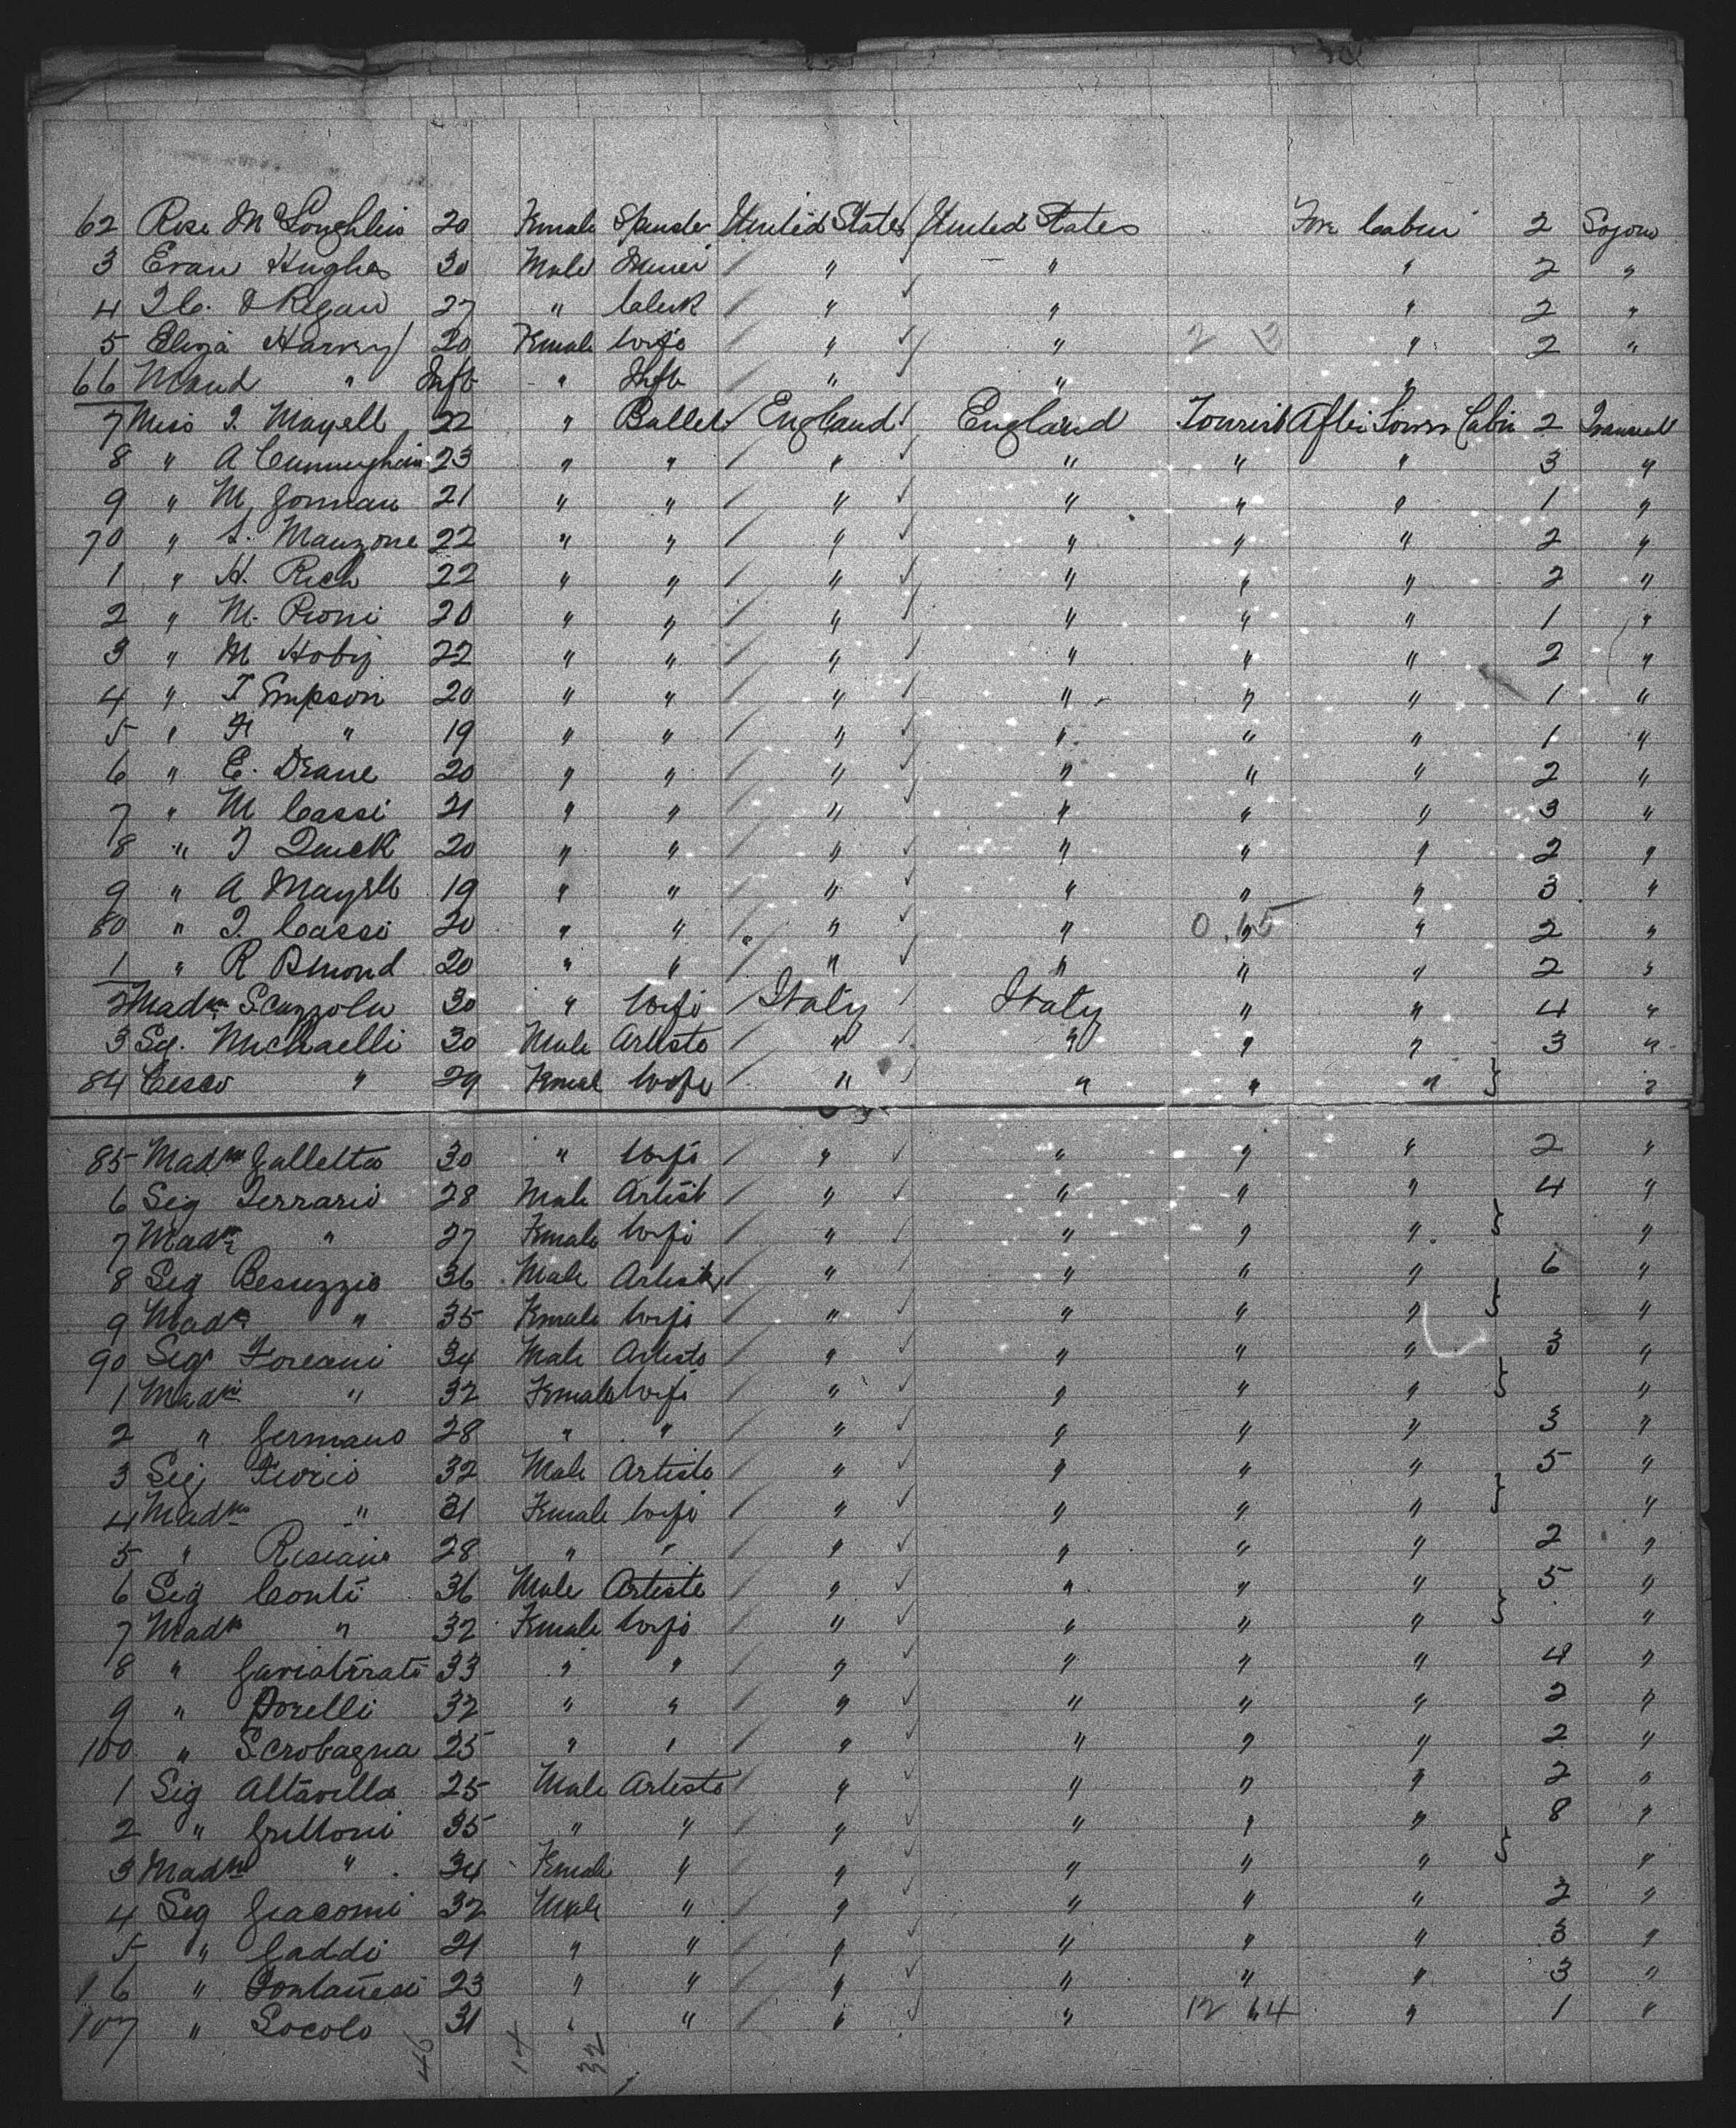 62 Rose McLoughlin 20 Female Spinster United States United States Fore Cabin 2 Sojour
3 Evan Hughes 30 Male Miner " " " 2 "
4 O'Regan 27 " Clerk " " " 2 "
5 Eliza Harvey 20 Female Wife " " 2 3 " 2 "
66 Maud " Inft " Inft " " "
7 Miss Mayell 22 " Ballet England England Tourist After Lower Cabin 2 Transient
8 " A Cunningham 23 " " " " " " 3 "
9 " M Gorman 21 " " " " " " 1 "
70 " L. Manzone 22 " " " " " " 2 "
1 " H. Rich 22 " " " " " " 2 "
2 " M. Pioni 20 " " " " " " 1 "
3 " M Hoby 22 " " " " " " 2 "
4 " T Empson 20 " " " " " " 1 "
5 " F " 19 " " " " " " 1 "
6 " E. Deane 20 " " " " " " 2 "
7 " M Cassi 21 " " " " " " 3 "
8 " J Quick 20 " " " " " " 2 "
9 " A Mayell 19 " " " " " " 3 "
80 " J. Cassi 20 " " " " 0 15 " " 2 "
1 " R Almond 20 " " " " " " 2 "
2 Madm Scuzzola 30 " Wife Italy Italy " " 4 "
3 Sg. Michaelli 30 Male Artiste " " " " 3 "
84 Cesco " 29 Female Wife " " " " } "
85 Madm Galletta 30 " Wife " " " " 2 "
6 Sig Ferrario 28 Male Artist " " " " 4 "
7 Madm " 27 Female Wife " " " " } "
8 Sig Besuzzio 36 Male Artist " " " " 6 "
9 Madm " 35 Female Wife " " " " } "
90 Sigr Foreani 34 Male Artiste " " " " 3 "
1 Madm " 32 Female Wife " " " " } "
2 " Germano 28 " " " " " " 3 "
3 Sig Fiorio 32 Male Artiste " " " " 5 "
4 Madm " 31 Female Wife " " " " } "
5 " 28 " " " " " " 2 "
6 Sig Conti 36 Male Artiste " " " " 5 "
7 Madm " 32 Female Wife " " " " } "
8 " 33 " " " " " " 4 "
9 " 32 " " " " " " 2 "
100 " Scrobagna 25 " " " " " " 2 "
1 Sig Altavilla 25 Male Artiste " " " " 2 "
2 " Grittoni 35 " " " " " " 8 "
3 Madm " 34 Female " " " " " } "
4 Sig Giacomi 32 Male " " " " " 2 "
5 " Gaddi 21 " " " " " " 3 "
106 " Fontanesi 23 " " " " " " 3 "
107 " Socolo 31 " " " " 12 64 " 1 "
46 14 32